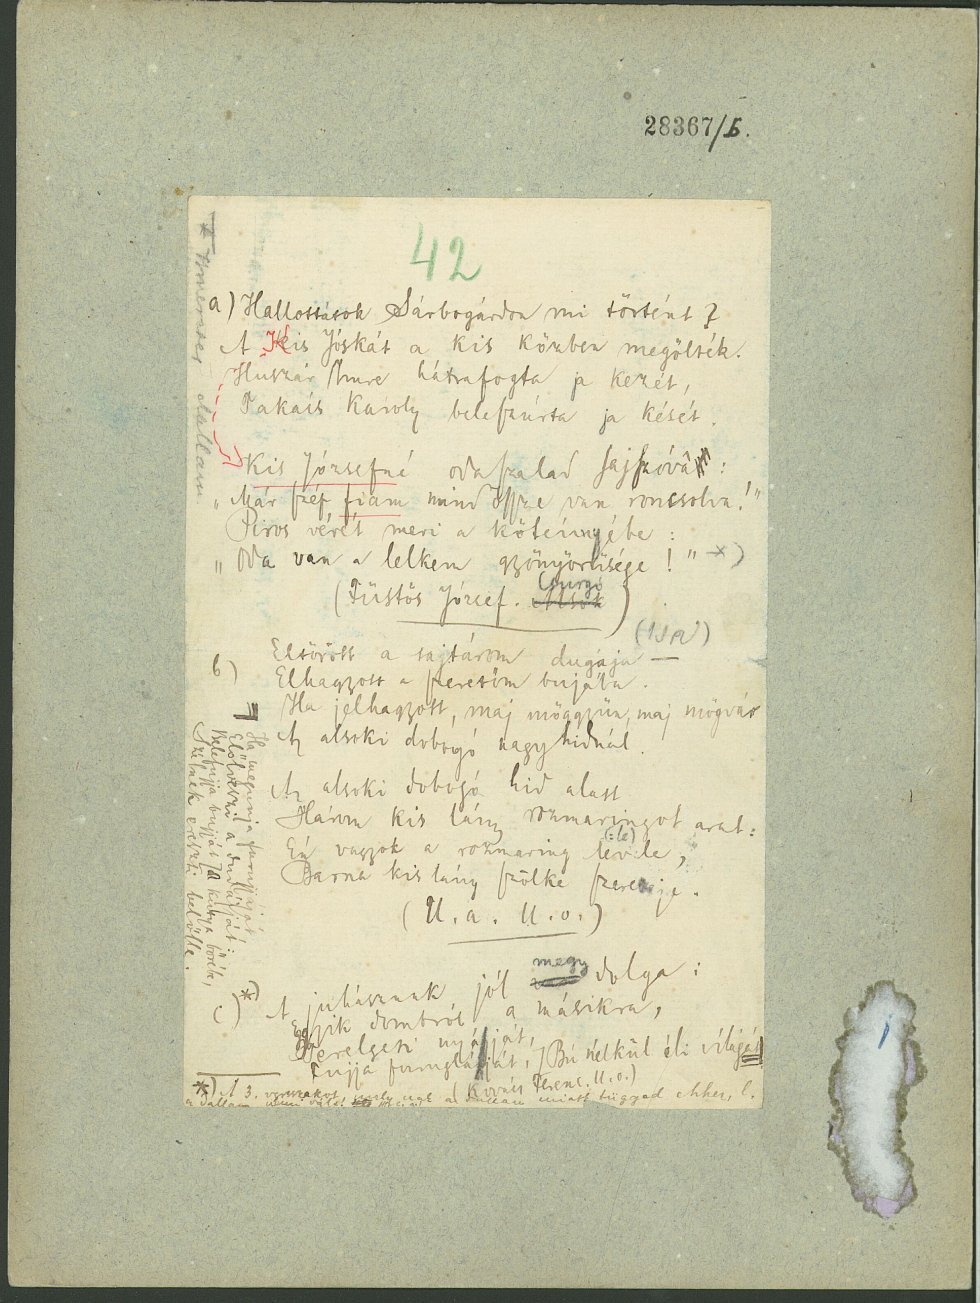 28367/B.
42
* Ismeretes dallam.
a) Hallottátok Sárbogárdon mi történt?
A Kis Jóskát a kis közben megölték.
Huszár Imre hátrafogta ja kezét,
Takács Károly beleszúrta ja kését.
Kis Józsefné odaszalad jajszóvā :
"Már szép fiam mind össze van roncsolva!"
Piros vérét meri a kötéinnyébe :
"Oda van a lelkem gyönyörűsége!" *)
(Füstös József. Csurgó)
b) Eltörött a sajtárom dugája —
Elhagyott a szeretőm bujába.
Ha jelhagyott, maj möggyün, maj mögvár
Az alsoki dobogó nagy hidnál.
Az alsoki dobogó hid alatt
Három kis lány rozmaringot arat:
Én vagyok a rozmaring levele,
Barna kislány szölke szeretője.
(U.a. U.o.)
c) A juhásznak jól megy dolga:
Egyik dombról a másikra,
Terelgeti nyáját,
Fujja furugláját, Bú nélkül éli világát
(Kovács Ferenc. U.o.)
Ha megunja furuglyáját
Előveszi a dudáját:
Belefujja buját a kutya bőrébe,
Szélnek ereszti belőlle.
*) A 3. versszakot